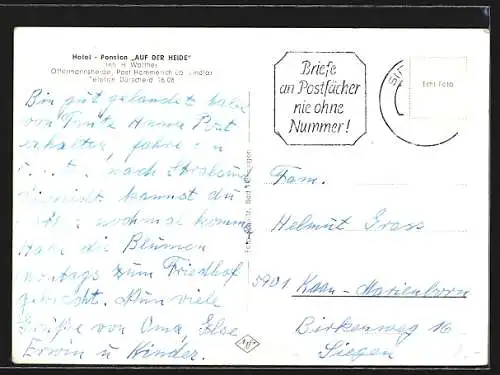 Hotel - Pension „AUF DER HEIDE"
Inh. H. Walther
Ottermannsheide, Post Hommerich üb. Lindlar
Telefon Dürscheid 16 08
Bin gut gelandet habe
von Tante Hanna Post
erhalten, fahre
nach Stralsund
kannst du
nochmal komme
die Blumen
zum Friedhof
gebracht. Nun viele
Grüße von Oma, Else
Erwin u Kinder.
Briefe
an Postfächer
nie ohne
Nummer!
Echt Foto
Fam.
Helmut Grass
5901 Kaan-Marienborn
Birkenweg 16
Siegen